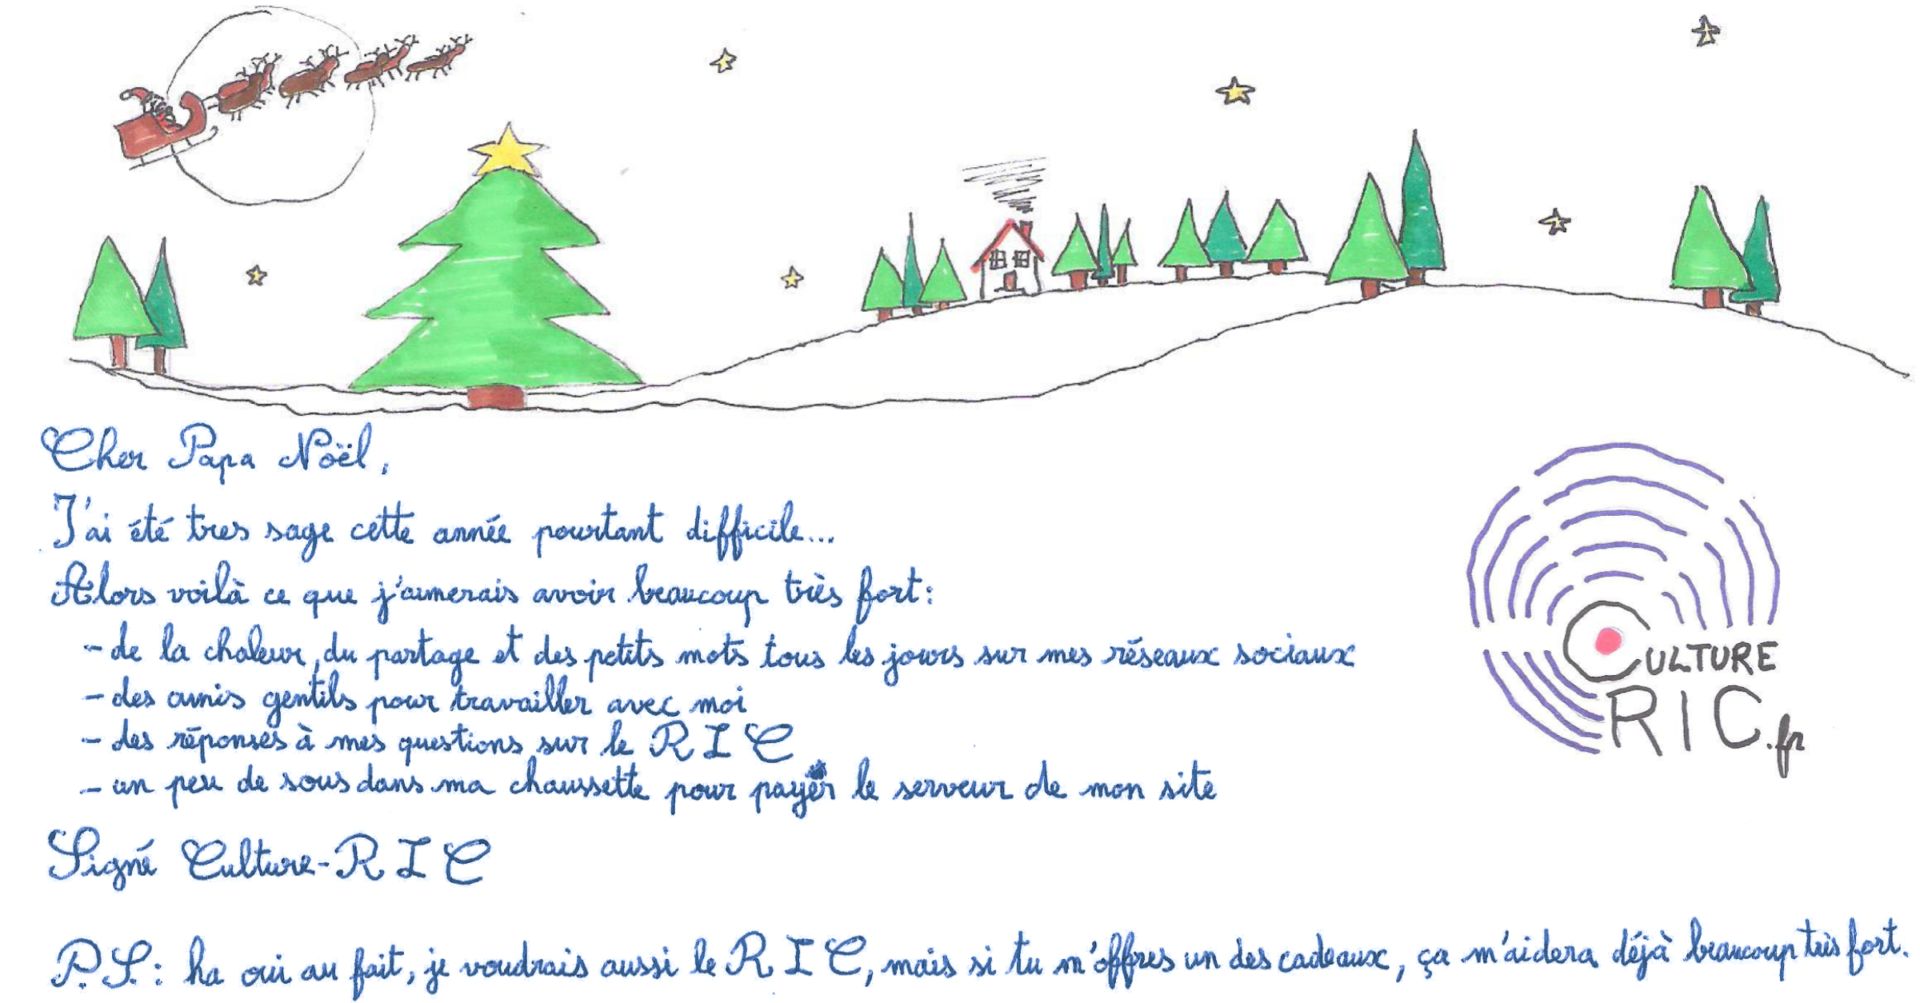 Cher Papa Noël,
J'ai été tres sage cette année pourtant difficile...
Alors voilà ce que j'aimerais avoir beaucoup très fort:
- de la chaleur, du partage et des petits mots tous les jours sur mes réseaux sociaux
- des amis gentils pour travailler avec moi
- des réponses à mes questions sur le RIC
- un peu de sous dans ma chaussette pour payer le serveur de mon site
CULTURE
RIC.fr
Signé Culture-RIC
P.S.: ha oui au fait, je voudrais aussi le RIC, mais si tu m'offres un des cadeaux, ça m'aidera déjà beaucoup très fort.